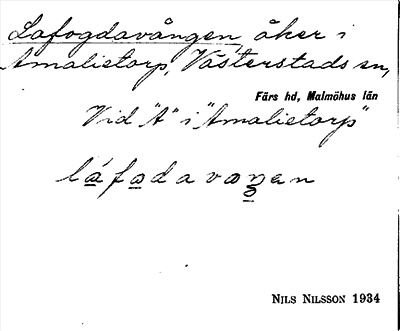 Lafogdavången, åker i
Amalietorp, Västerstads sn,
Färs hd, Malmöhus län
Vid "A" i "Amalietorp"
NILS NILSSON 1934